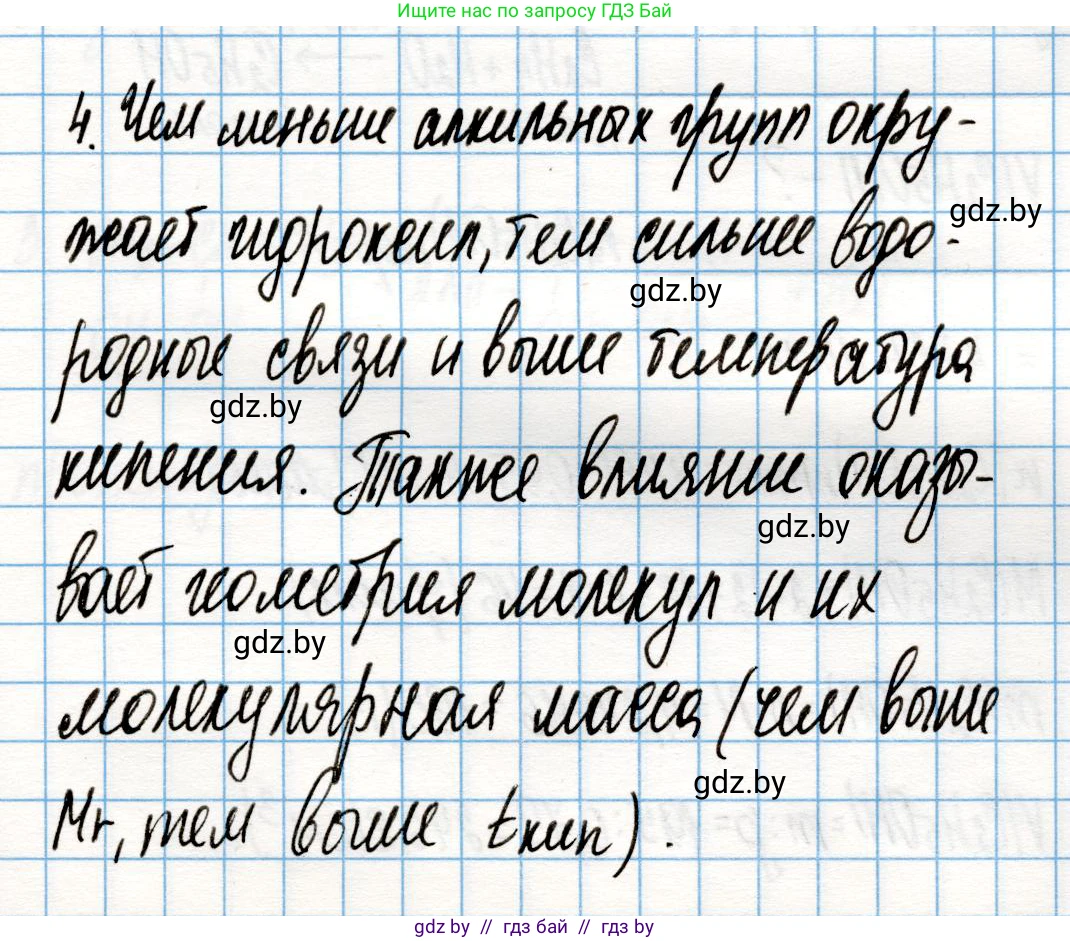 Ищите нас по запросу ГДЗ Бай
4. Чем меньше алкильных групп окру-
жает гидроксил, тем сильнее водо-
gdz.by
gdz.by
родные связи и выше температура
gdz.by
кипения. Также влияние оказы-
gdz.by
вает геометрия молекул и их
gdz.by
молекулярная масса (чем выше
gdz.by
Mr, тем выше tкип).
gdz by // гдз бай // gdz by